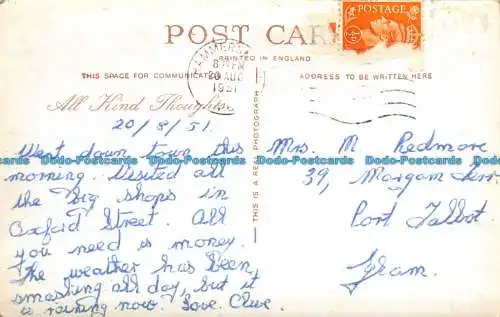 POST CARD
PRINTED IN ENGLAND
THIS SPACE FOR COMMUNICATION
ADDRESS TO BE WRITTEN HERE
POSTAGE
HAMMERSMITH
8 PM
20 AUG
1951
THIS IS A REAL PHOTOGRAPH
All Kind Thoughts
20/8/51.
Went down town this
morning. Visited all
the big shops in
Oxford Street. All
you need is money.
The weather has been
smashing all day, but it
is raining now. Love. Clive.
Mrs. M. Redmore
39, Margam Terr.
Port Talbot
Glam.
Dodo-Postcards Dodo-Postcards Dodo-Postcards Dodo-Postcards Dodo-Postcards